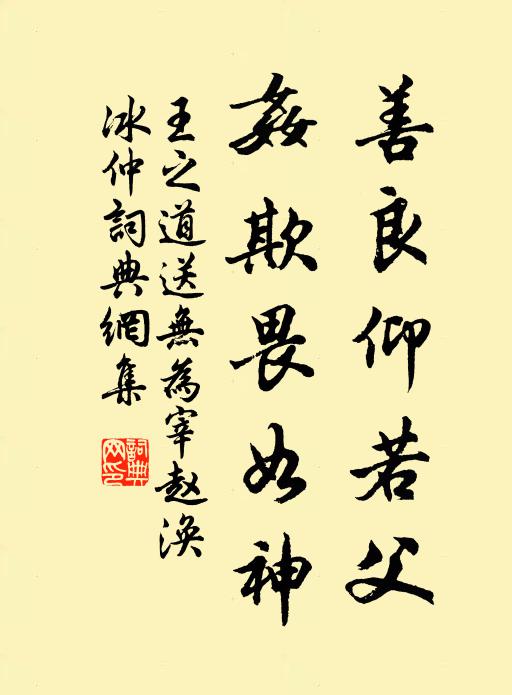 善良仰若父
姦欺畏如神
王之道送無為宰赵渙
冰仲詞典網集
詞典
网印